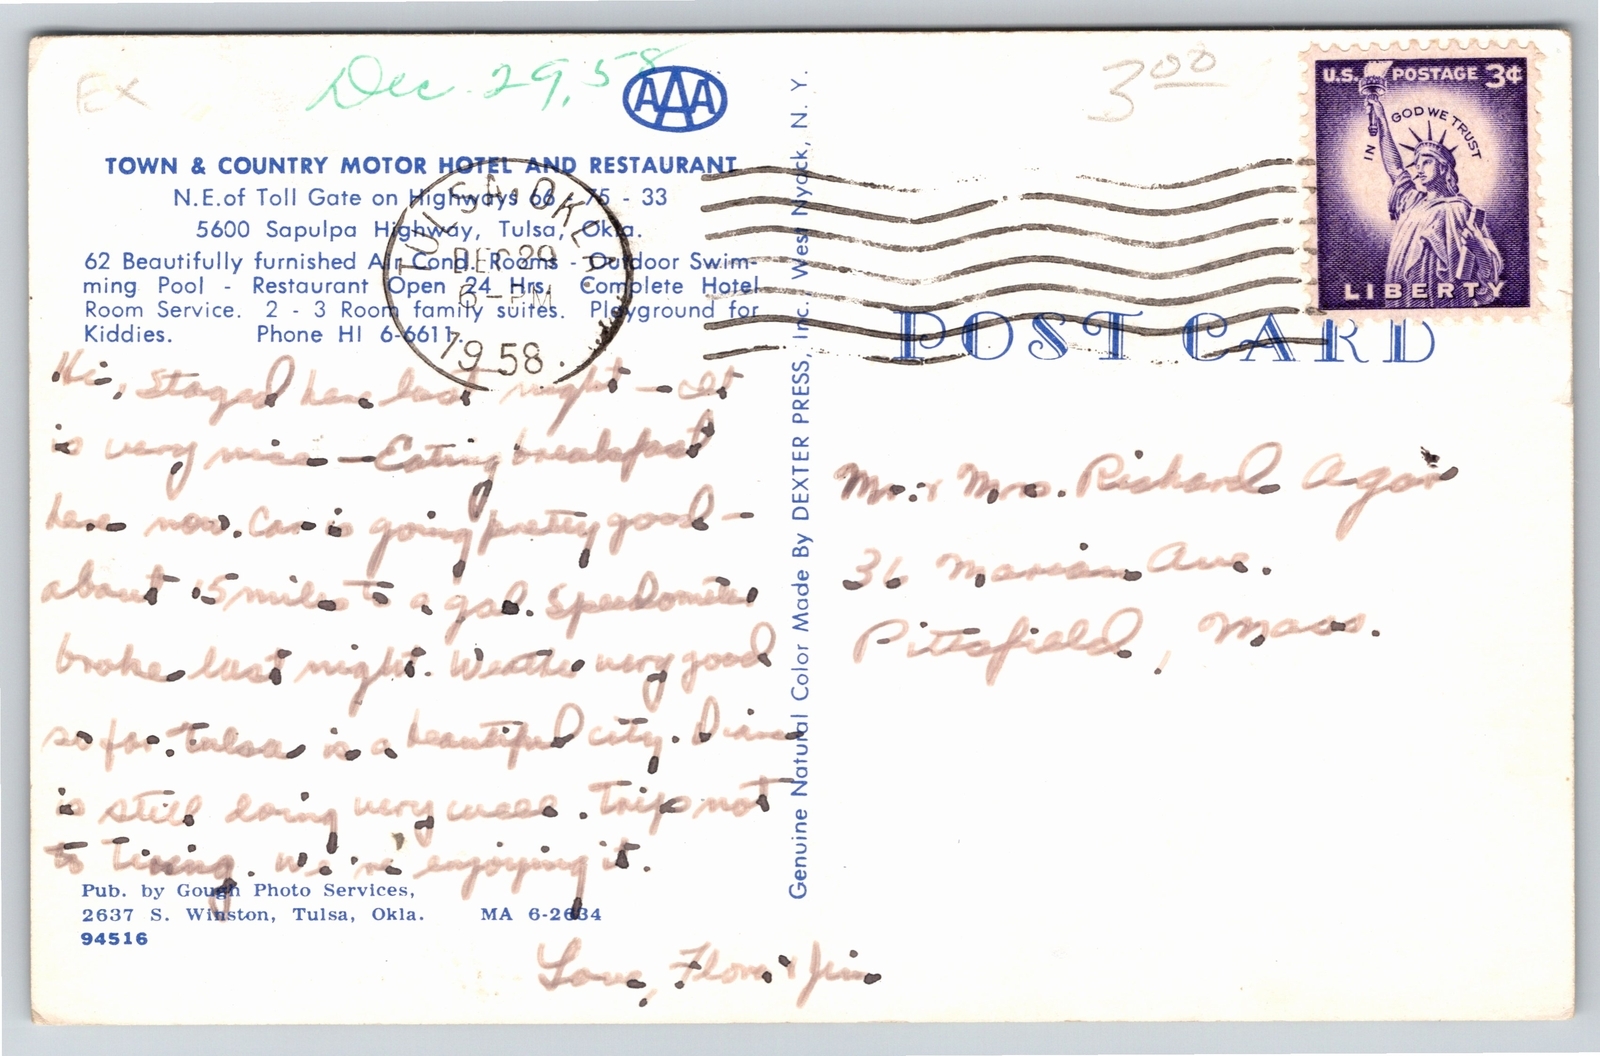 EX
Dec. 29, 58
AAA
3.00
U.S. POSTAGE 3¢
IN GOD WE TRUST
LIBERTY
TOWN & COUNTRY MOTOR HOTEL AND RESTAURANT
N.E. of Toll Gate on Highways 66 - 75 - 33
5600 Sapulpa Highway, Tulsa, Okla.
62 Beautifully furnished Air Cond. Rooms - Outdoor Swim-
ming Pool - Restaurant Open 24 Hrs. Complete Hotel
Room Service. 2 - 3 Room family suites. Playground for
Kiddies. Phone HI 6-6611
TULSA, OKLA.
DEC 29
6 - PM
1958
POST CARD
Hi, Stayed here last night — It
is very nice — Eating breakfast
here now. Car is going pretty good —
about 15 miles to a gal. Speedometer
broke last night. Weather very good
so far. Tulsa is a beautiful city. Diane
is still doing very well. Trip's not
to tiring. We're enjoying it.
Love, Flora & Jim
Mr. & Mrs. Richard Agar
36 Marian Ave.
Pittsfield, Mass.
Pub. by Gough Photo Services,
2637 S. Winston, Tulsa, Okla. MA 6-2634
94516
Genuine Natural Color Made By DEXTER PRESS, Inc. West Nyack, N. Y.